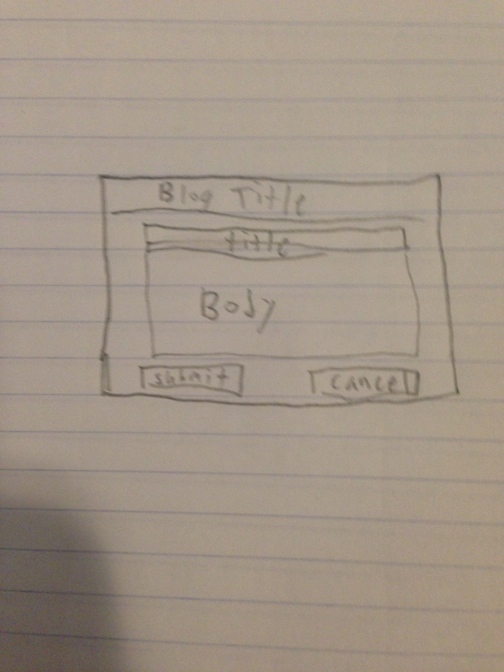 Blog Title
title
Body
submit
cancel